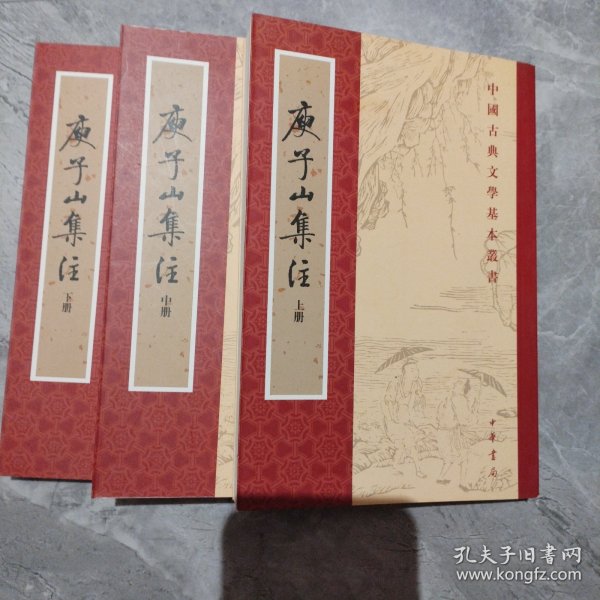 庾子山集注
下册
庾子山集注
中册
庾子山集注
上册
中國古典文學基本叢書
中華書局
孔夫子旧书网
www.kongfz.com